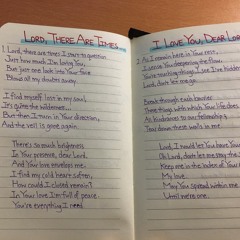 LORD, THERE ARE TIMES
1 Lord, there are times I start to question
Just how much I'm loving You,
But just one look into Your face
Blows all my doubts away.
I find myself lost in my soul,
It's quite the wilderness
But then I turn in Your direction,
And the veil is gone again.
There's so much brightness
In Your presence, dear Lord,
And Your love envelops me.
I find my cold heart soften,
How could I closed remain?
In Your love I'm full of peace
You're everything I need
I LOVE YOU, DEAR LORD
2 As I remain here in rest,
I sense You deepening
You're touching things I see I've hidden
Lord, don't let me go.
Break through each barrier
Lord, I would let You have Your
Oh Lord, don't let me stay the
Keep me in the
My love
May You spread within me
Until we're one.